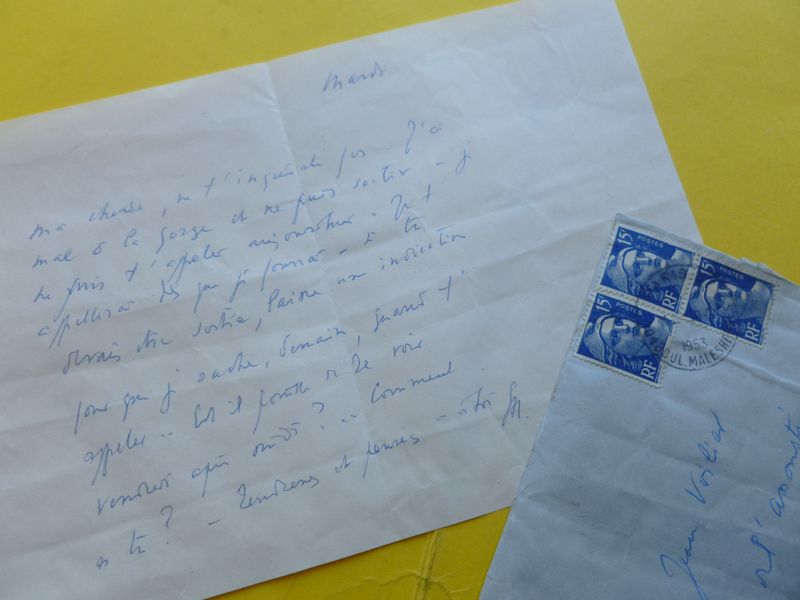 Mardi
ma chérie, ne t'inquiète pas. J'ai
mal à la gorge et ne puis sortir - je
ne puis t'appeler aujourd'hui - Je t'
appellerai dès que je pourrai - Si tu
devais être sortie, laisse une indication
pour que je sache, demain, quand t'
appeler -- Est-il possible de te voir
vendredi après midi ? -- Comment
es tu ? - Tendresses et pensées - à toi
15 POSTES RF
15 POSTES RF
15 RF
1953
BUL. MALESH
Jean Voilier
de l'assomp